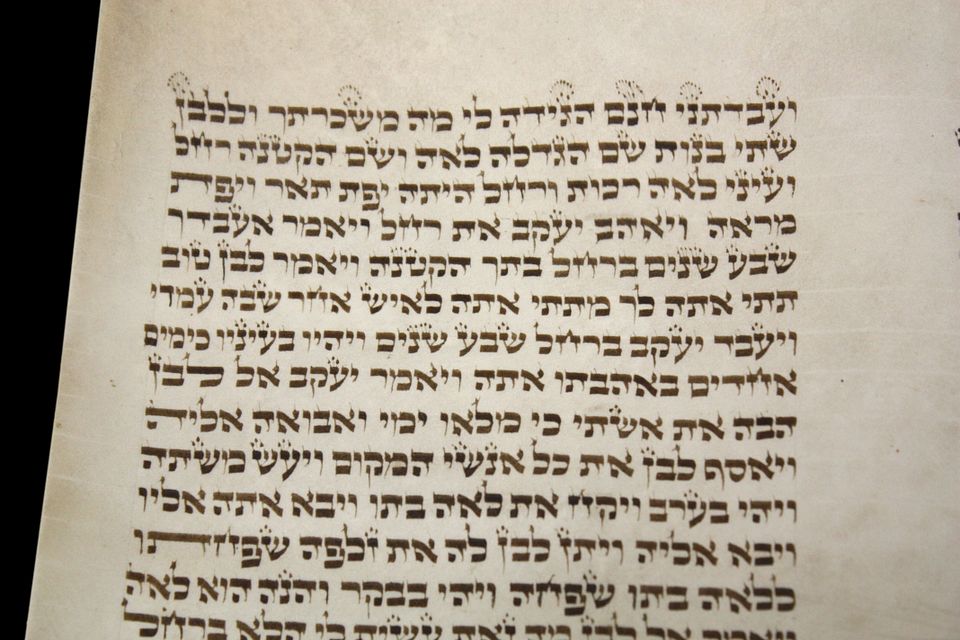 ועבדתני חנם הגידה לי מה משכרתך וללבן
שתי בנות שם הגדלה לאה ושם הקטנה רחל
ועיני לאה רכות ורחל היתה יפת תאר ויפת
מראה ויאהב יעקב את רחל ויאמר אעבדך
שבע שנים ברחל בתך הקטנה ויאמר לבן טוב
תתי אתה לך מתתי אתה לאיש אחר שבה עמדי
ויעבד יעקב ברחל שבע שנים ויהיו בעיניו כימים
אחדים באהבתו אתה ויאמר יעקב אל לבן
הבה את אשתי כי מלאו ימי ואבואה אליה
ויאסף לבן את כל אנשי המקום ויעש משתה
ויהי בערב ויקח את לאה בתו ויבא אתה אליו
ויבא אליה ויתן לבן לה את זלפה שפחתו
ללאה בתו שפחה ויהי בבקר והנה הוא לאה
ויאמר אל לבן מה זאת עשית לי הלא ברחל